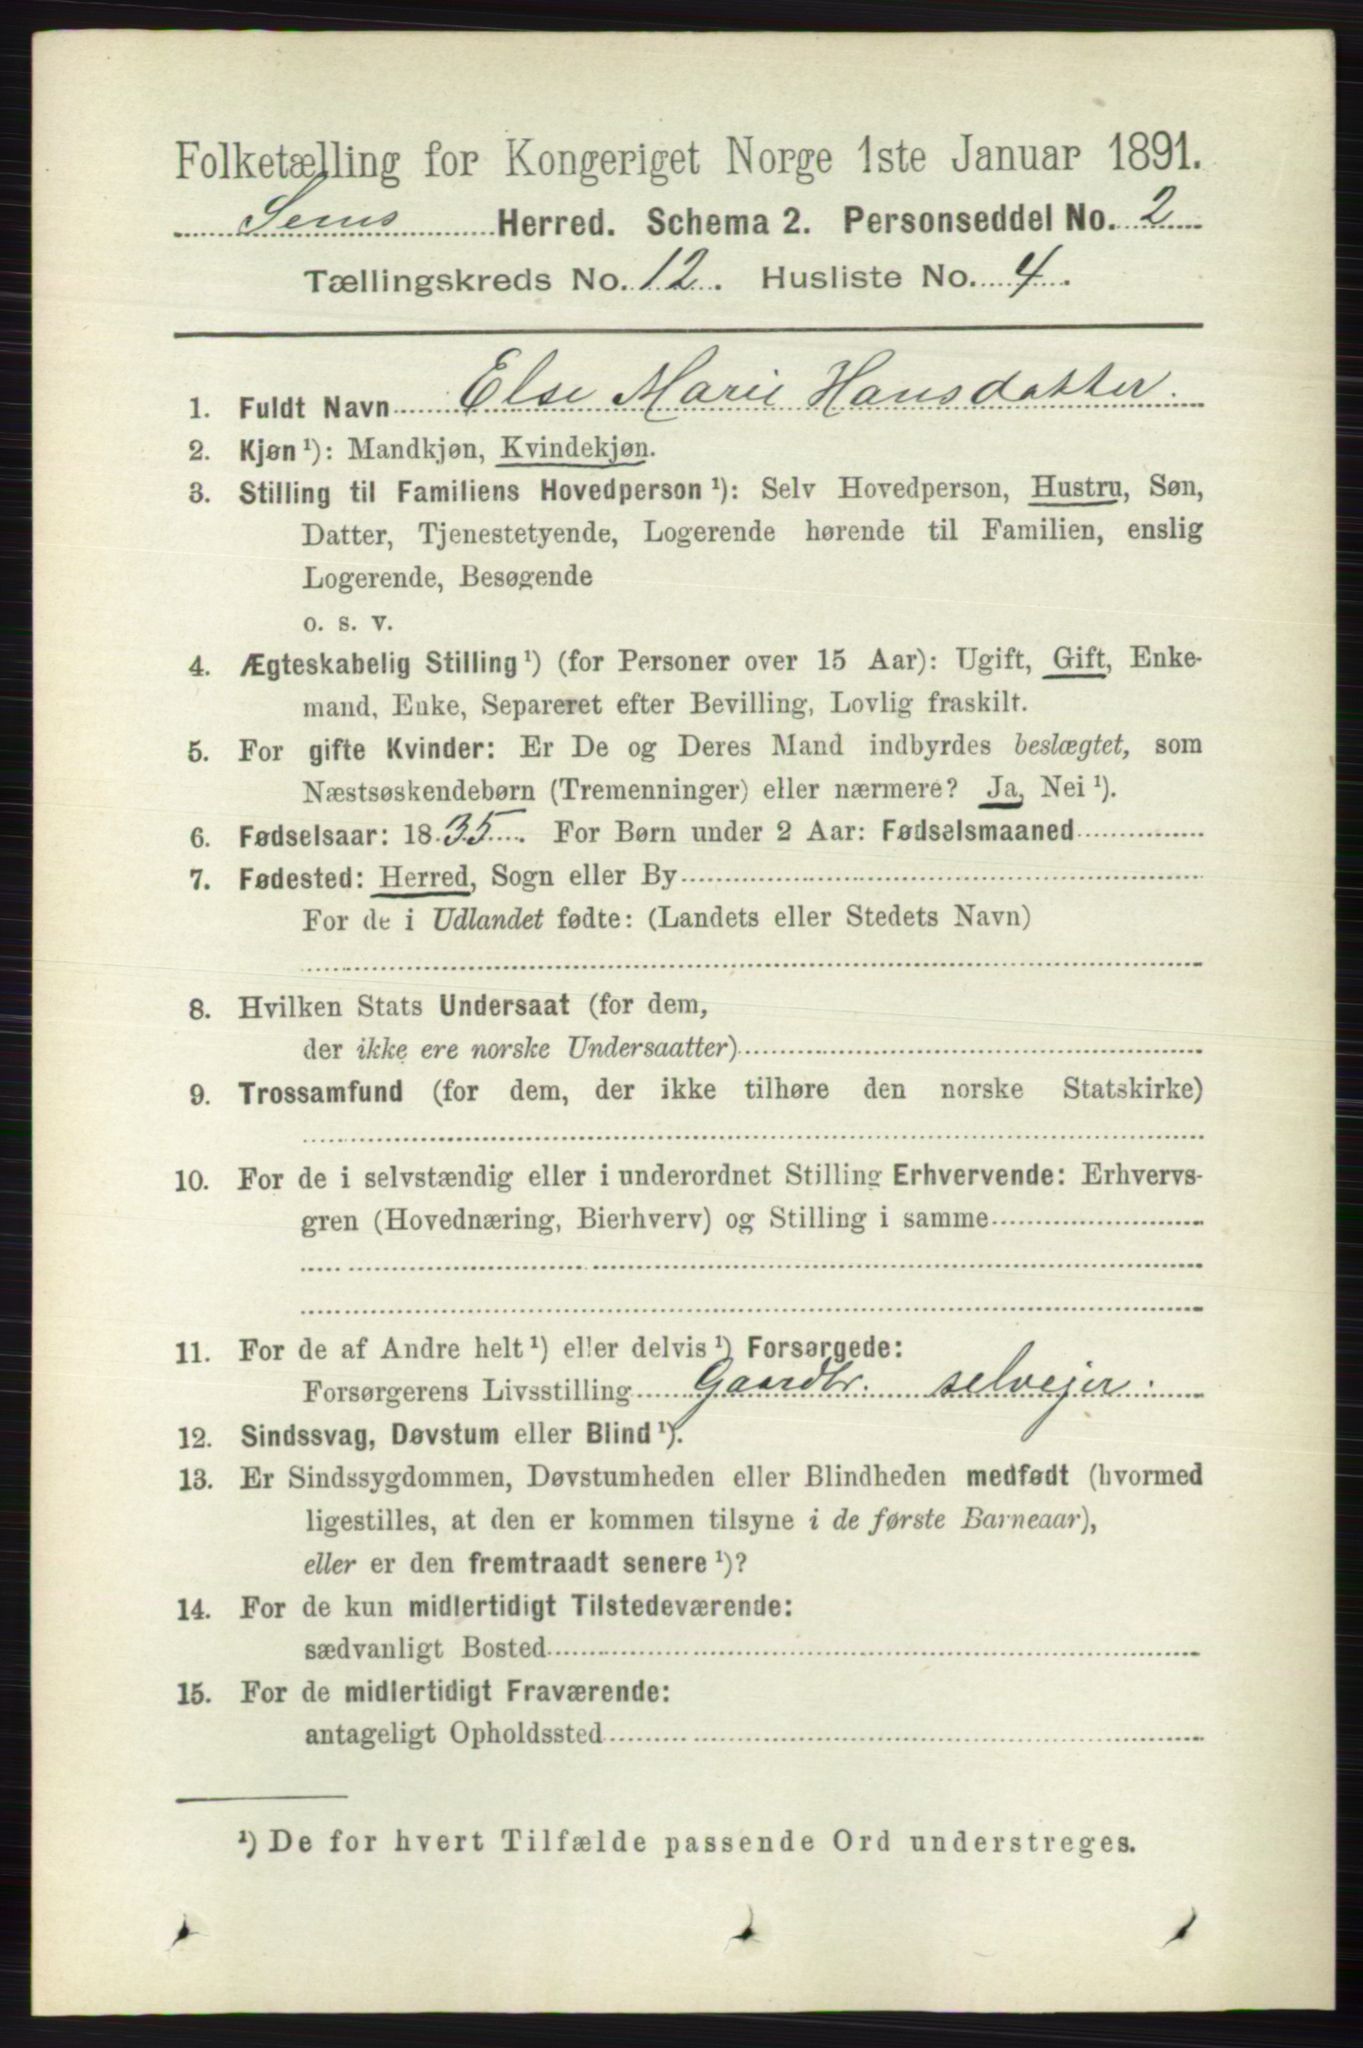 Folketælling for Kongeriget Norge 1ste Januar 1891.
Sems Herred. Schema 2. Personseddel No. 2
Tællingskreds No. 12. Husliste No. 4.
1. Fuldt Navn Else Marie Hansdatter.
2. Kjøn ¹): Mandkjøn, Kvindekjøn.
3. Stilling til Familiens Hovedperson ¹): Selv Hovedperson, Hustru, Søn,
Datter, Tjenestetyende, Logerende hørende til Familien, enslig
Logerende, Besøgende
o. s. v.
4. Ægteskabelig Stilling ¹) (for Personer over 15 Aar): Ugift, Gift, Enke-
mand, Enke, Separeret efter Bevilling, Lovlig fraskilt.
5. For gifte Kvinder: Er De og Deres Mand indbyrdes beslægtet, som
Næstsøskendebørn (Tremenninger) eller nærmere? Ja, Nei ¹).
6. Fødselsaar: 1835. For Børn under 2 Aar: Fødselsmaaned
7. Fødested: Herred, Sogn eller By
For de i Udlandet fødte: (Landets eller Stedets Navn)
8. Hvilken Stats Undersaat (for dem,
der ikke ere norske Undersaatter)
9. Trossamfund (for dem, der ikke tilhøre den norske Statskirke)
10. For de i selvstændig eller i underordnet Stilling Erhvervende: Erhvervs-
gren (Hovednæring, Bierhverv) og Stilling i samme
11. For de af Andre helt ¹) eller delvis ¹) Forsørgede:
Forsørgerens Livsstilling Gaardbr. selvejer.
12. Sindssvag, Døvstum eller Blind ¹).
13. Er Sindssygdommen, Døvstumheden eller Blindheden medfødt (hvormed
ligestilles, at den er kommen tilsyne i de første Barneaar),
eller er den fremtraadt senere ¹)?
14. For de kun midlertidigt Tilstedeværende:
sædvanligt Bosted
15. For de midlertidigt Fraværende:
antageligt Opholdssted
¹) De for hvert Tilfælde passende Ord understreges.